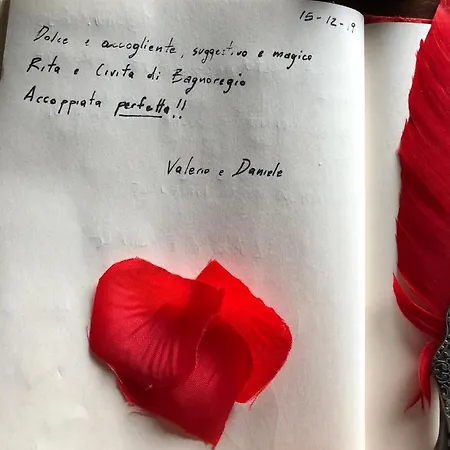 15-12-19
Dolce e accogliente, suggestivo e magico
Rita e Civita di Bagnoregio
Accoppiata perfetta!!
Valerio e Daniele